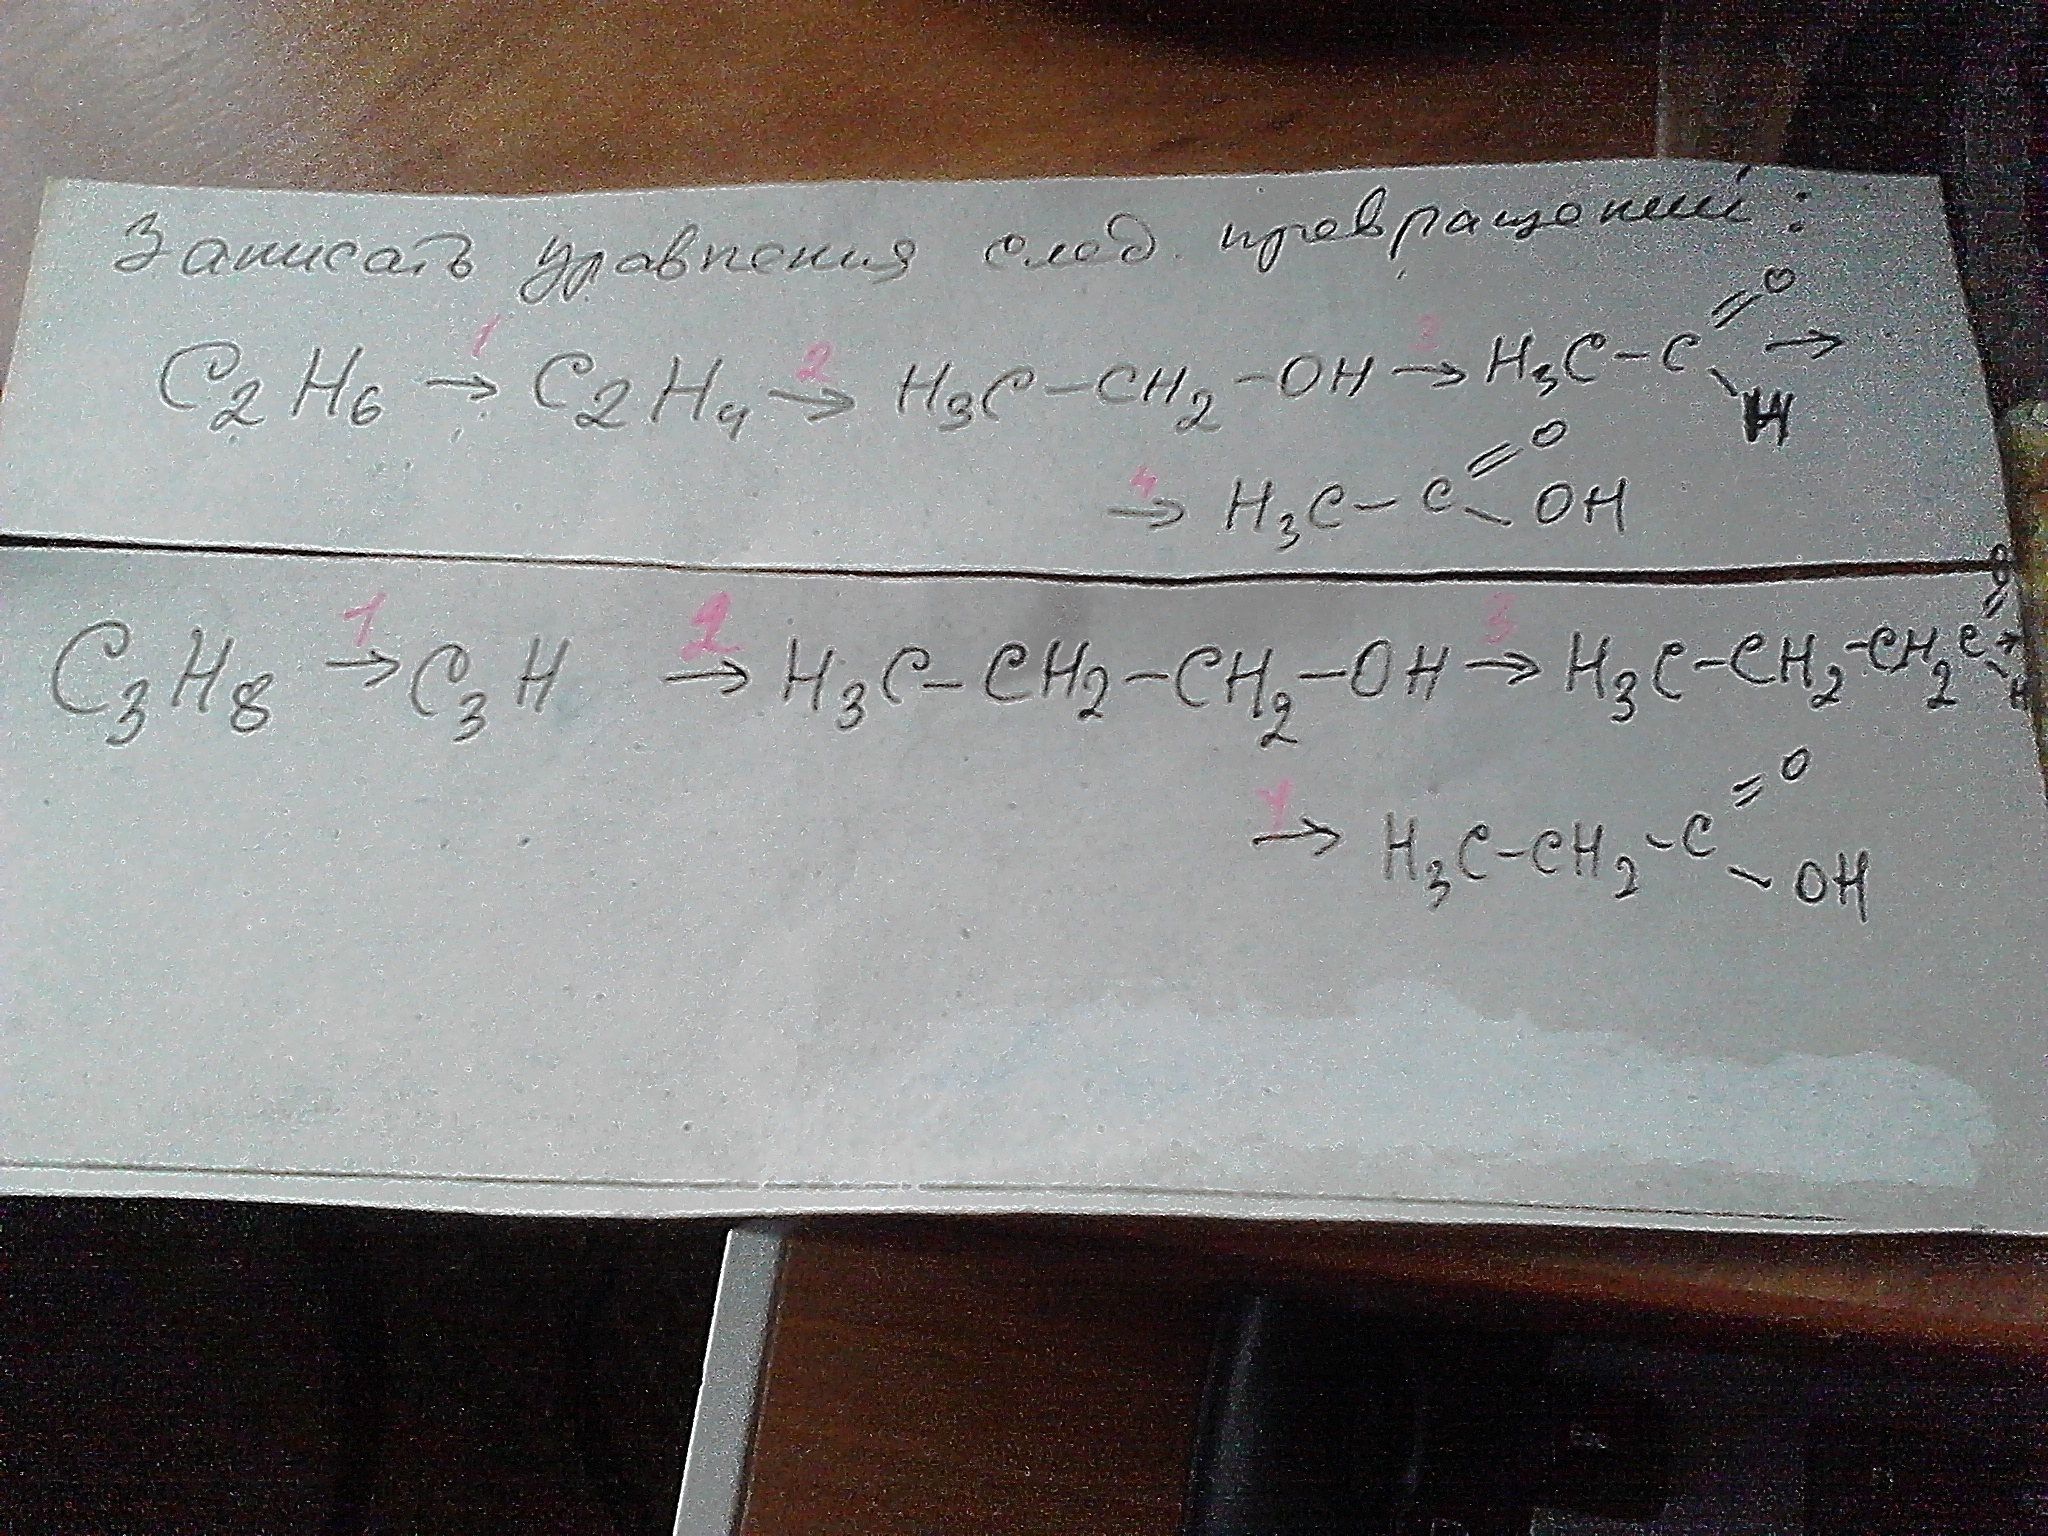 Записать уравнения след. превращений:
C₂H₆ →1 C₂H₄ →2 H₃C-CH₂-OH →3 H₃C-C=O-H →
→4 H₃C-C=O-OH
C₃H₈ →1 C₃H →2 H₃C-CH₂-CH₂-OH →3 H₃C-CH₂-CH₂C=O-H
→4 H₃C-CH₂-C=O-OH